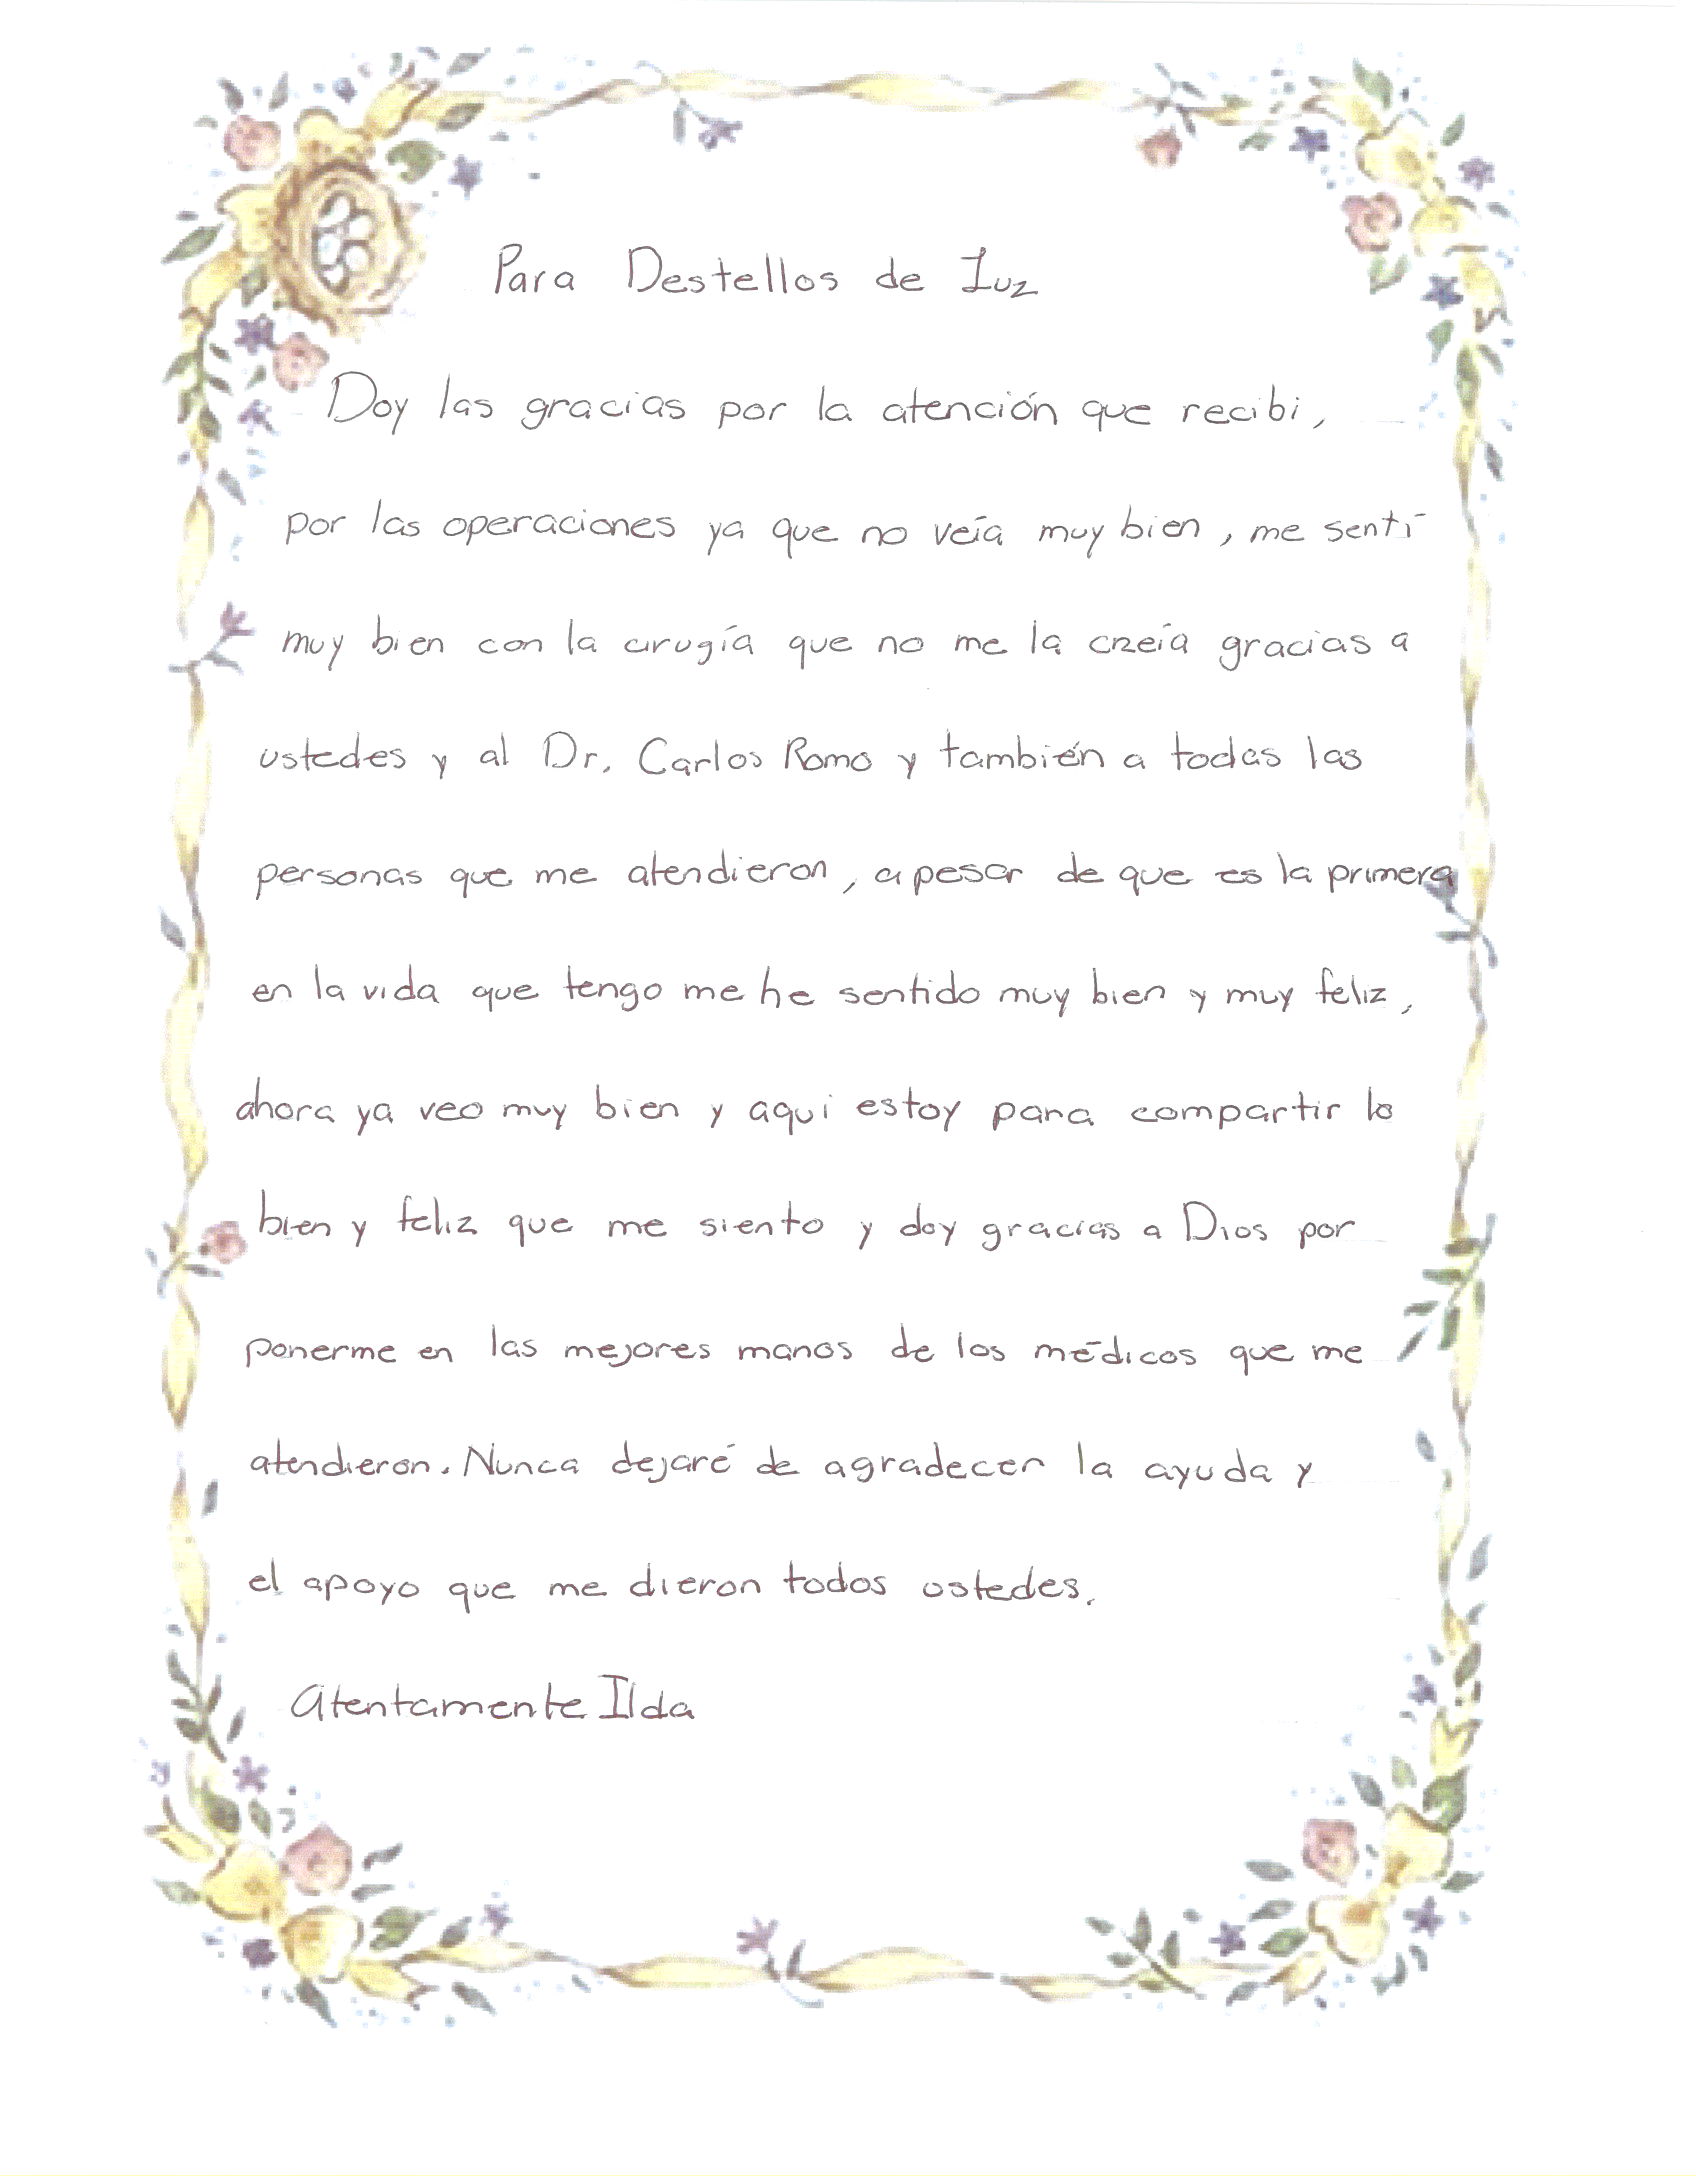 Para Destellos de Luz
Doy las gracias por la atención que recibi,
por las operaciones ya que no veía muy bien, me sentí
muy bien con la cirugía que no me la creía gracias a
ustedes y al Dr. Carlos Romo y también a todas las
personas que me atendieron, a pesar de que es la primera
en la vida que tengo me he sentido muy bien y muy feliz,
ahora ya veo muy bien y aqui estoy para compartir lo
bien y feliz que me siento y doy gracias a Dios por
ponerme en las mejores manos de los médicos que me
atendieron. Nunca dejaré de agradecer la ayuda y
el apoyo que me dieron todos ustedes.
Atentamente Ilda